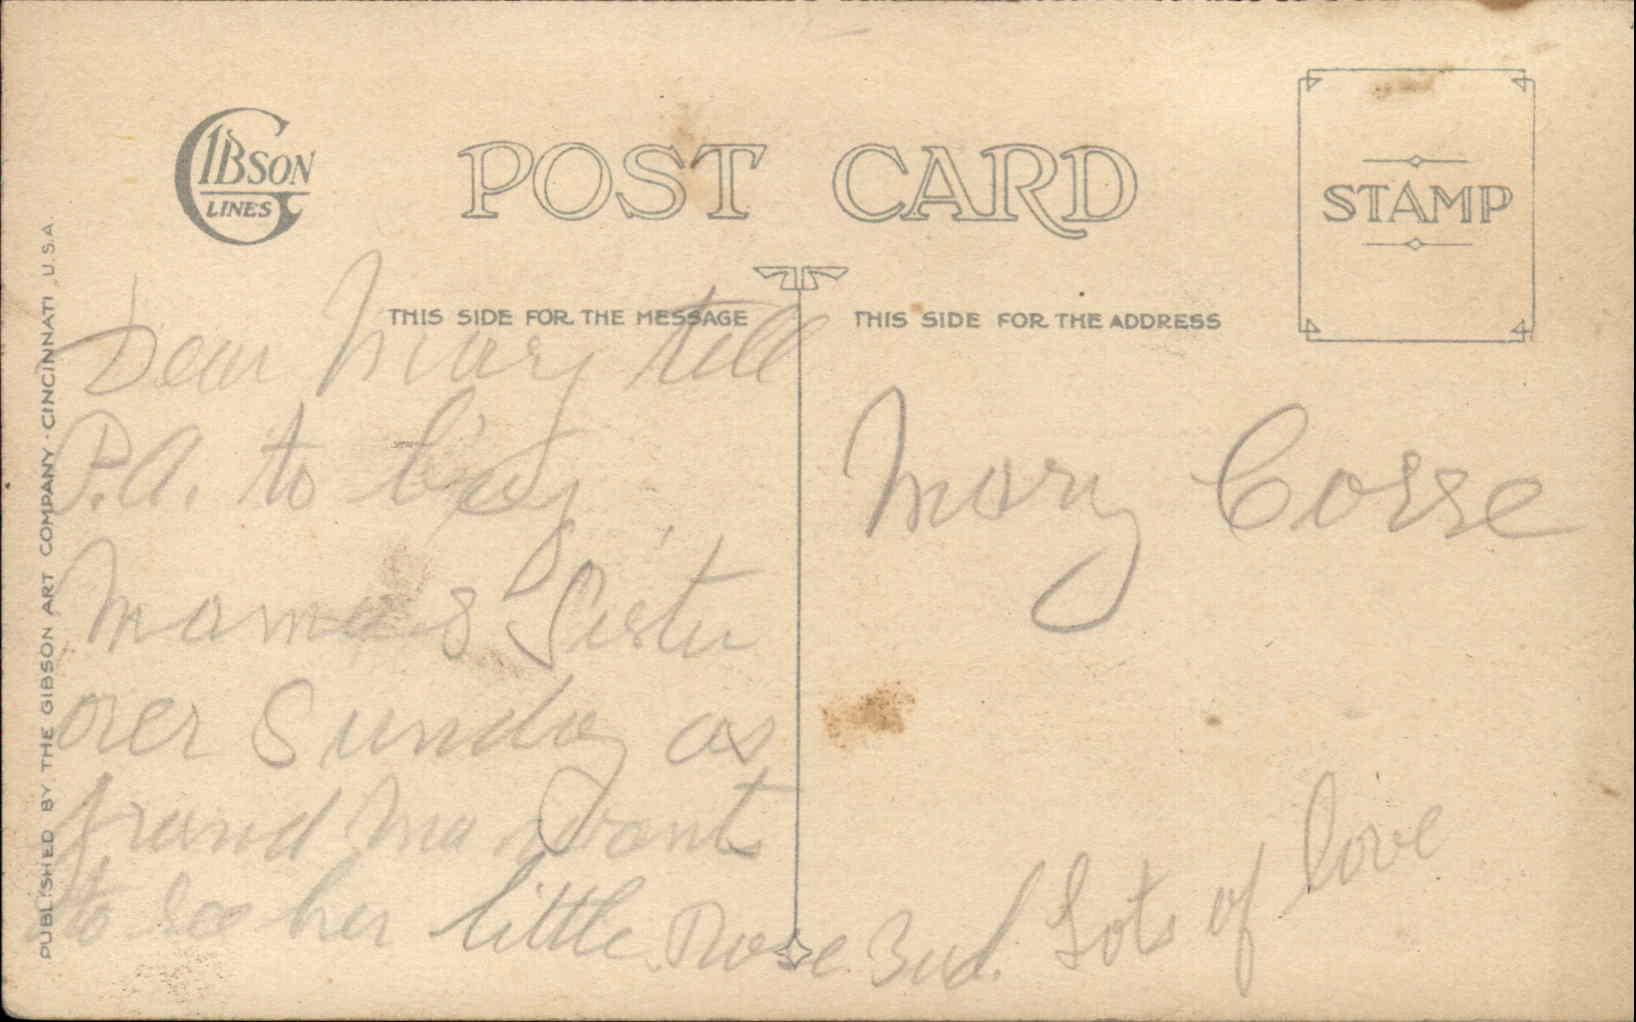 GIBSON
LINES
POST CARD
STAMP
THIS SIDE FOR THE MESSAGE
THIS SIDE FOR THE ADDRESS
PUBLISHED BY THE GIBSON ART COMPANY · CINCINNATI, U.S.A.
Dear Mary tell
P.A. to
Mama & Sister
over Sunday as
grand Ma want
to see her little Rose Bud. Lots of love
Mary Cosse